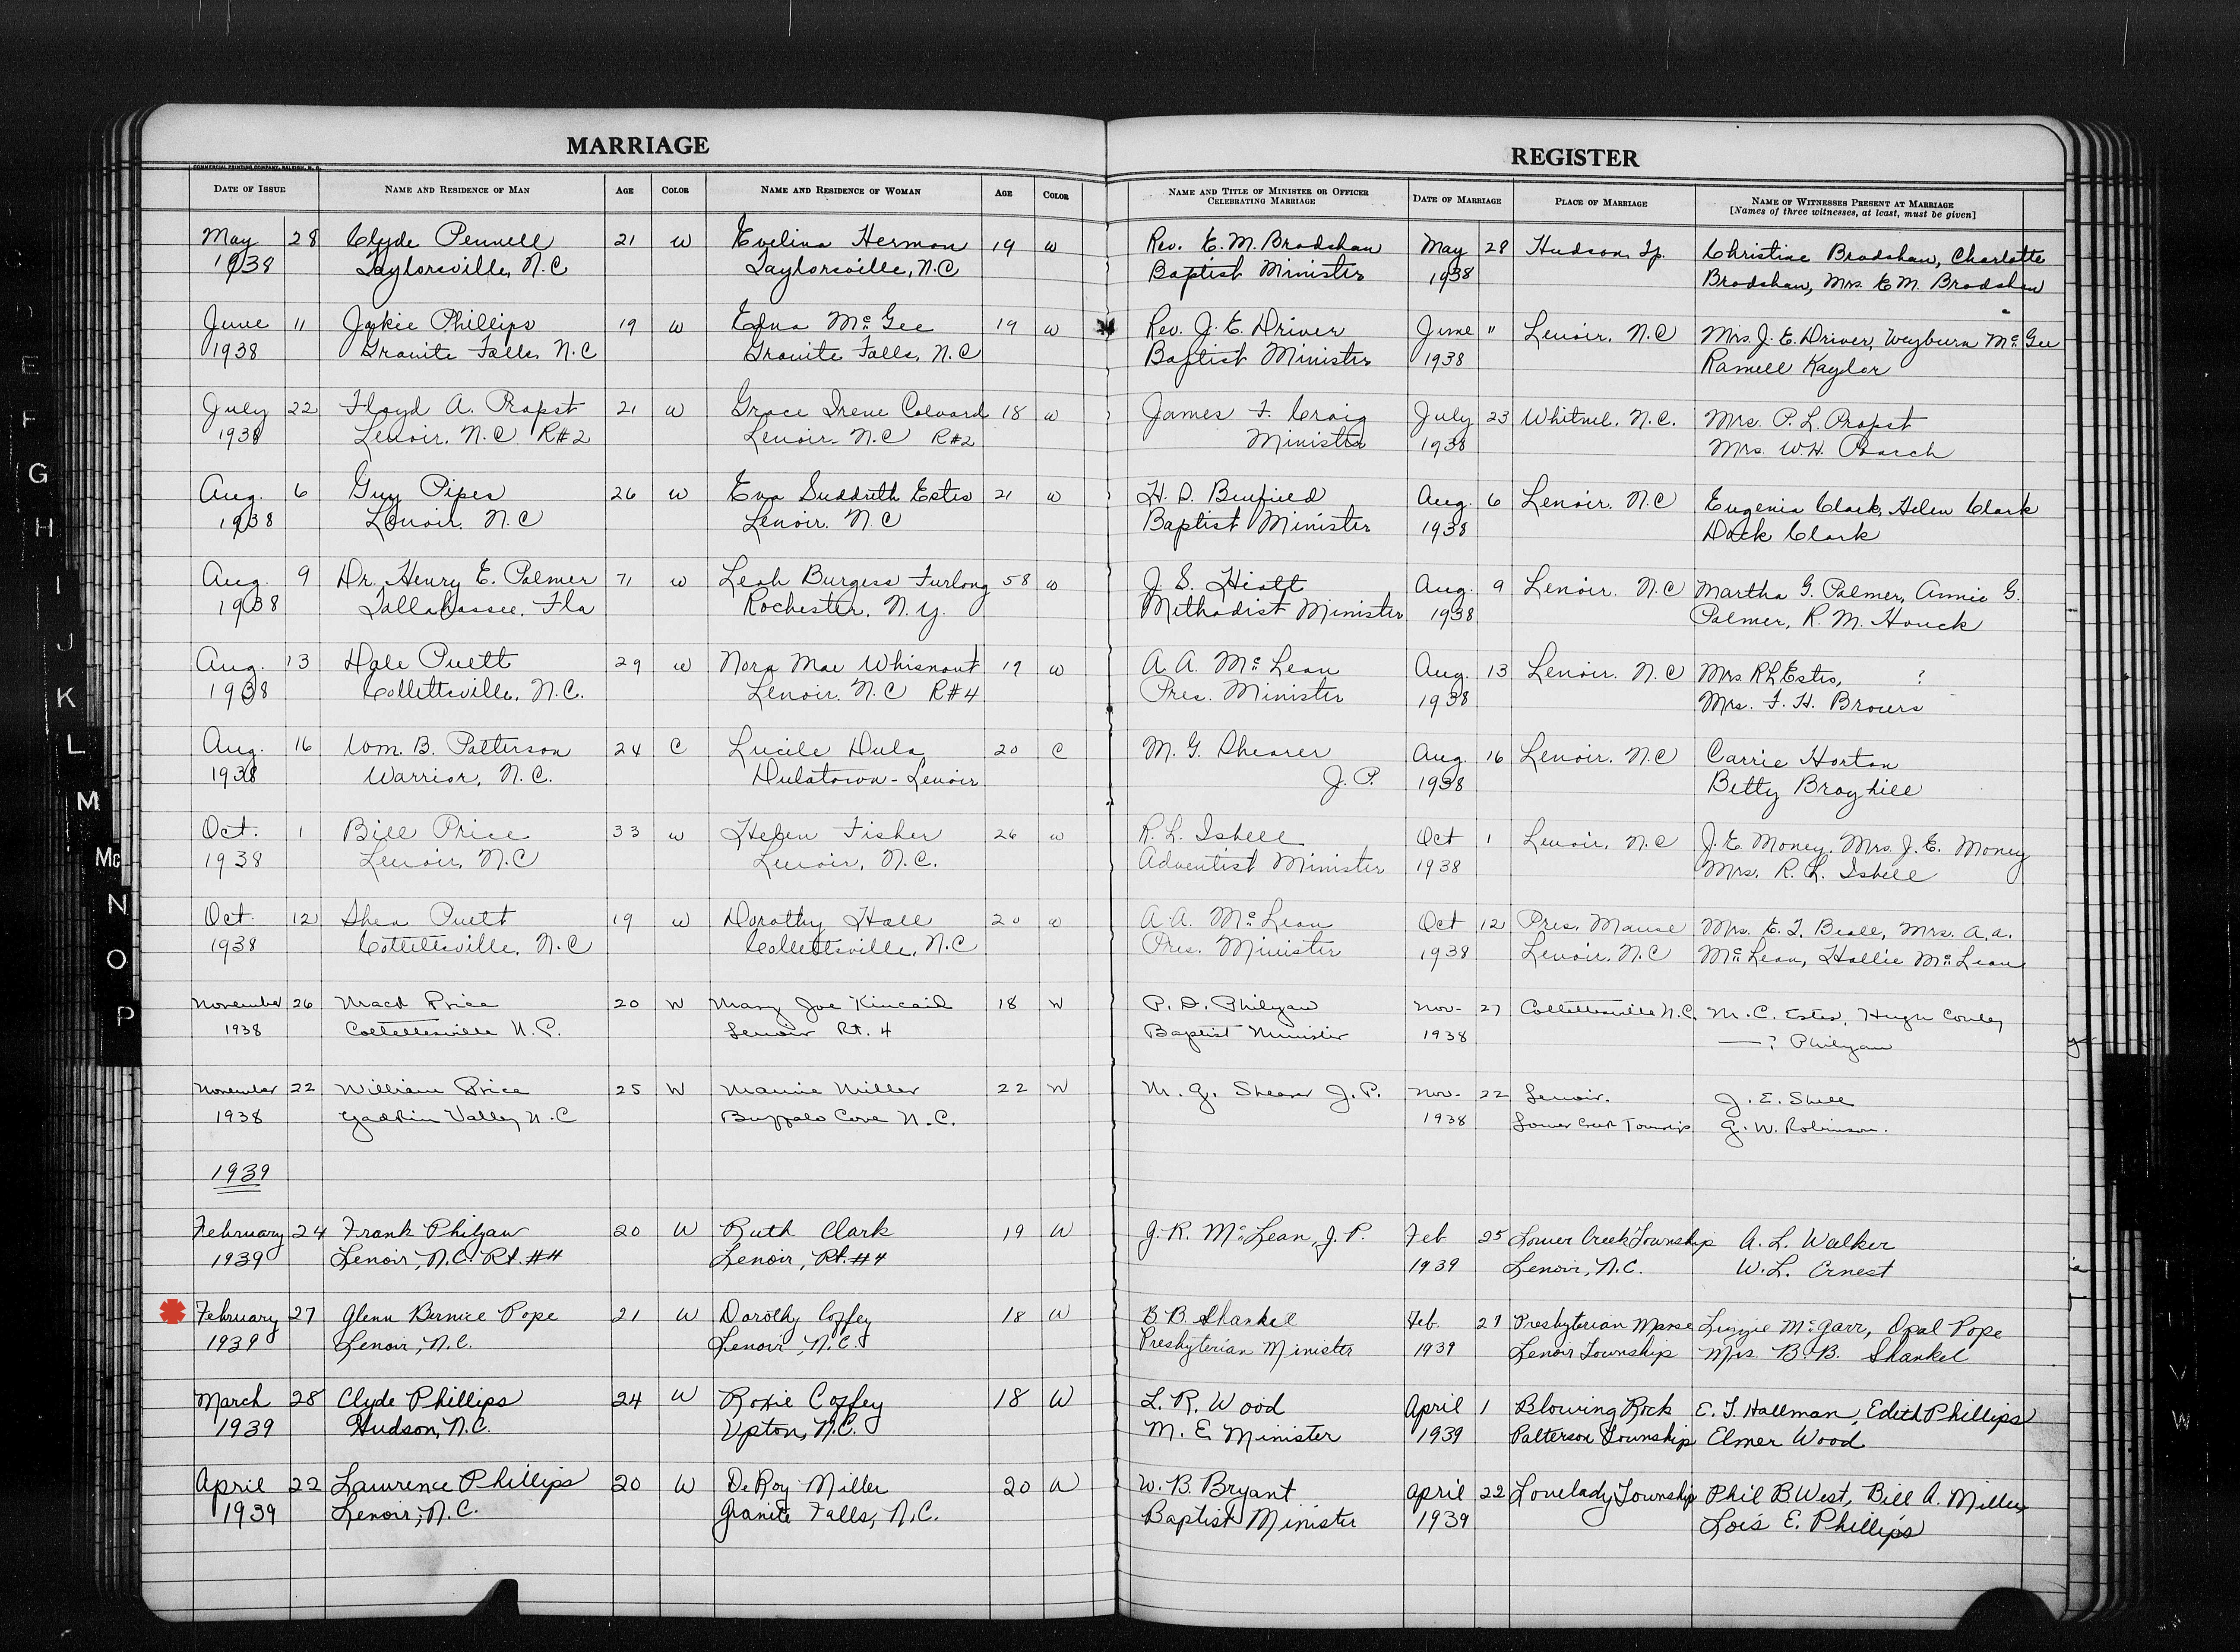 MARRIAGE
REGISTER
COMMERCIAL PRINTING COMPANY, RALEIGH, N. C.
DATE OF ISSUE NAME AND RESIDENCE OF MAN AGE COLOR NAME AND RESIDENCE OF WOMAN AGE COLOR NAME AND TITLE OF MINISTER OR OFFICER CELEBRATING MARRIAGE DATE OF MARRIAGE PLACE OF MARRIAGE NAME OF WITNESSES PRESENT AT MARRIAGE
[Names of three witnesses, at least, must be given]
May 28 Clyde Pennell 21 W Evelina Herman 19 W Rev. E. M. Bradshaw May 28 Hudson, Tp. Christine Bradshaw, Charlotte
1938 Taylorsville, N.C Taylorsville, N.C Baptist Minister 1938 Bradshaw, Mrs. E M. Bradshaw
June 11 Jakie Phillips 19 W Edna McGee 19 W Rev. J. E. Driver June " Lenoir, N.C Mrs. J. E. Driver, Weyburn McGee
1938 Granite Falls, N.C Granite Falls, N.C Baptist Minister 1938 Ramell Kaylor
July 22 Floyd A. Propst 21 W Grace Irene Colvard 18 W James F. Craig July 23 Whitnel, N.C. Mrs. P. L. Propst
1938 Lenoir, N.C R#2 Lenoir, N.C R#2 Minister 1938 Mrs. W.H.
Aug. 6 Guy Pipes 26 W Eva Suddreth Estes 21 W H. D. Benfield Aug. 6 Lenoir, N.C Eugenia Clark, Helen Clark
1938 Lenoir, N.C Lenoir, N.C Baptist Minister 1938 Dock Clark
Aug. 9 Dr. Henry E. Palmer 71 W Leah Burgess Furlong 58 W J. S. Hiatt Aug. 9 Lenoir, N.C Martha G. Palmer, Annie G.
1938 Tallahassee, Fla Rochester, N.Y. Methodist Minister 1938 Palmer, R. M. Houck
Aug. 13 Dale Puett 29 W Nora Mae Whisnant 19 W A. A. McLean Aug. 13 Lenoir, N.C Mrs R L Estes, ?
1938 Collettsville, N.C. Lenoir, N.C R#4 Pres. Minister 1938 Mrs. F. H.
Aug. 16 Wm. B. Patterson 24 C Lucile Dula 20 C M. G. Shearer Aug. 16 Lenoir, N.C Carrie Horton
1938 Warrior, N.C. Dulatown - Lenoir J. P. 1938 Betty Broyhill
Oct. 1 Bill Price 33 W Helen Fisher 26 W R. L. Isbell Oct 1 Lenoir, N.C J. E. Money, Mrs. J. E. Money
1938 Lenoir, N.C Lenoir, N.C. Adventist Minister 1938 Mrs. R. L. Isbell
Oct. 12 Shea Puett 19 W Dorothy Hall 20 W A. A. McLean Oct 12 Pres. Manse Mrs. E. T. Beall, Mrs. A. A.
1938 Collettsville, N.C Collettsville, N.C Pres. Minister 1938 Lenoir, N.C McLean, Hallie McLean
November 26 Mack Price 20 W Mary Joe Kincaid 18 W P. D. Philyaw Nov- 27 Collettsville N.C. M. C. Estes, Hugh Conley
1938 Collettsville N.C. Lenoir Rt. 4 Baptist Minister 1938 —? Philyaw
November 22 William Price 25 W Mamie Miller 22 W M. G. Shearer J. P. Nov- 22 Lenoir. J. E. Shell
1938 Yadkin Valley N.C Buffalo Cove N.C. 1938 Lower Creek Township G. W. Robinson.
1939
February 24 Frank Philyaw 20 W Ruth Clark 19 W G. R. McLean, J. P. Feb 25 Lower Creek Township A. L. Walker
1939 Lenoir, N.C. Rt. #4 Lenoir, Rt. #4 1939 Lenoir, N.C. W. L. Ernest
February 27 Glenn Bernice Pope 21 W Dorothy Coffey 18 W B. B. Shankel Feb. 27 Presbyterian Manse Lizzie McGarr, Opal Pope
1939 Lenoir, N.C. Lenoir, N.C. Presbyterian Minister 1939 Lenoir Township Mrs. B. B. Shankel
March 28 Clyde Phillips 24 W Roxie Coffey 18 W L. R. Wood April 1 Blowing Rock E. T. Hallman, Edith Phillips
1939 Hudson, N.C. Upton, N.C. M. E. Minister 1939 Patterson Township Elmer Wood
April 22 Lawrence Phillips 20 W DeRoy Miller 20 W W. B. Bryant April 22 Lovelady Township Phil B. West, Bill A. Miller,
1939 Lenoir, N.C. Granite Falls, N.C. Baptist Minister 1939 Lois E. Phillips
E
F
G
H
I
J
K
L
M
Mc
N
O
P
V
W